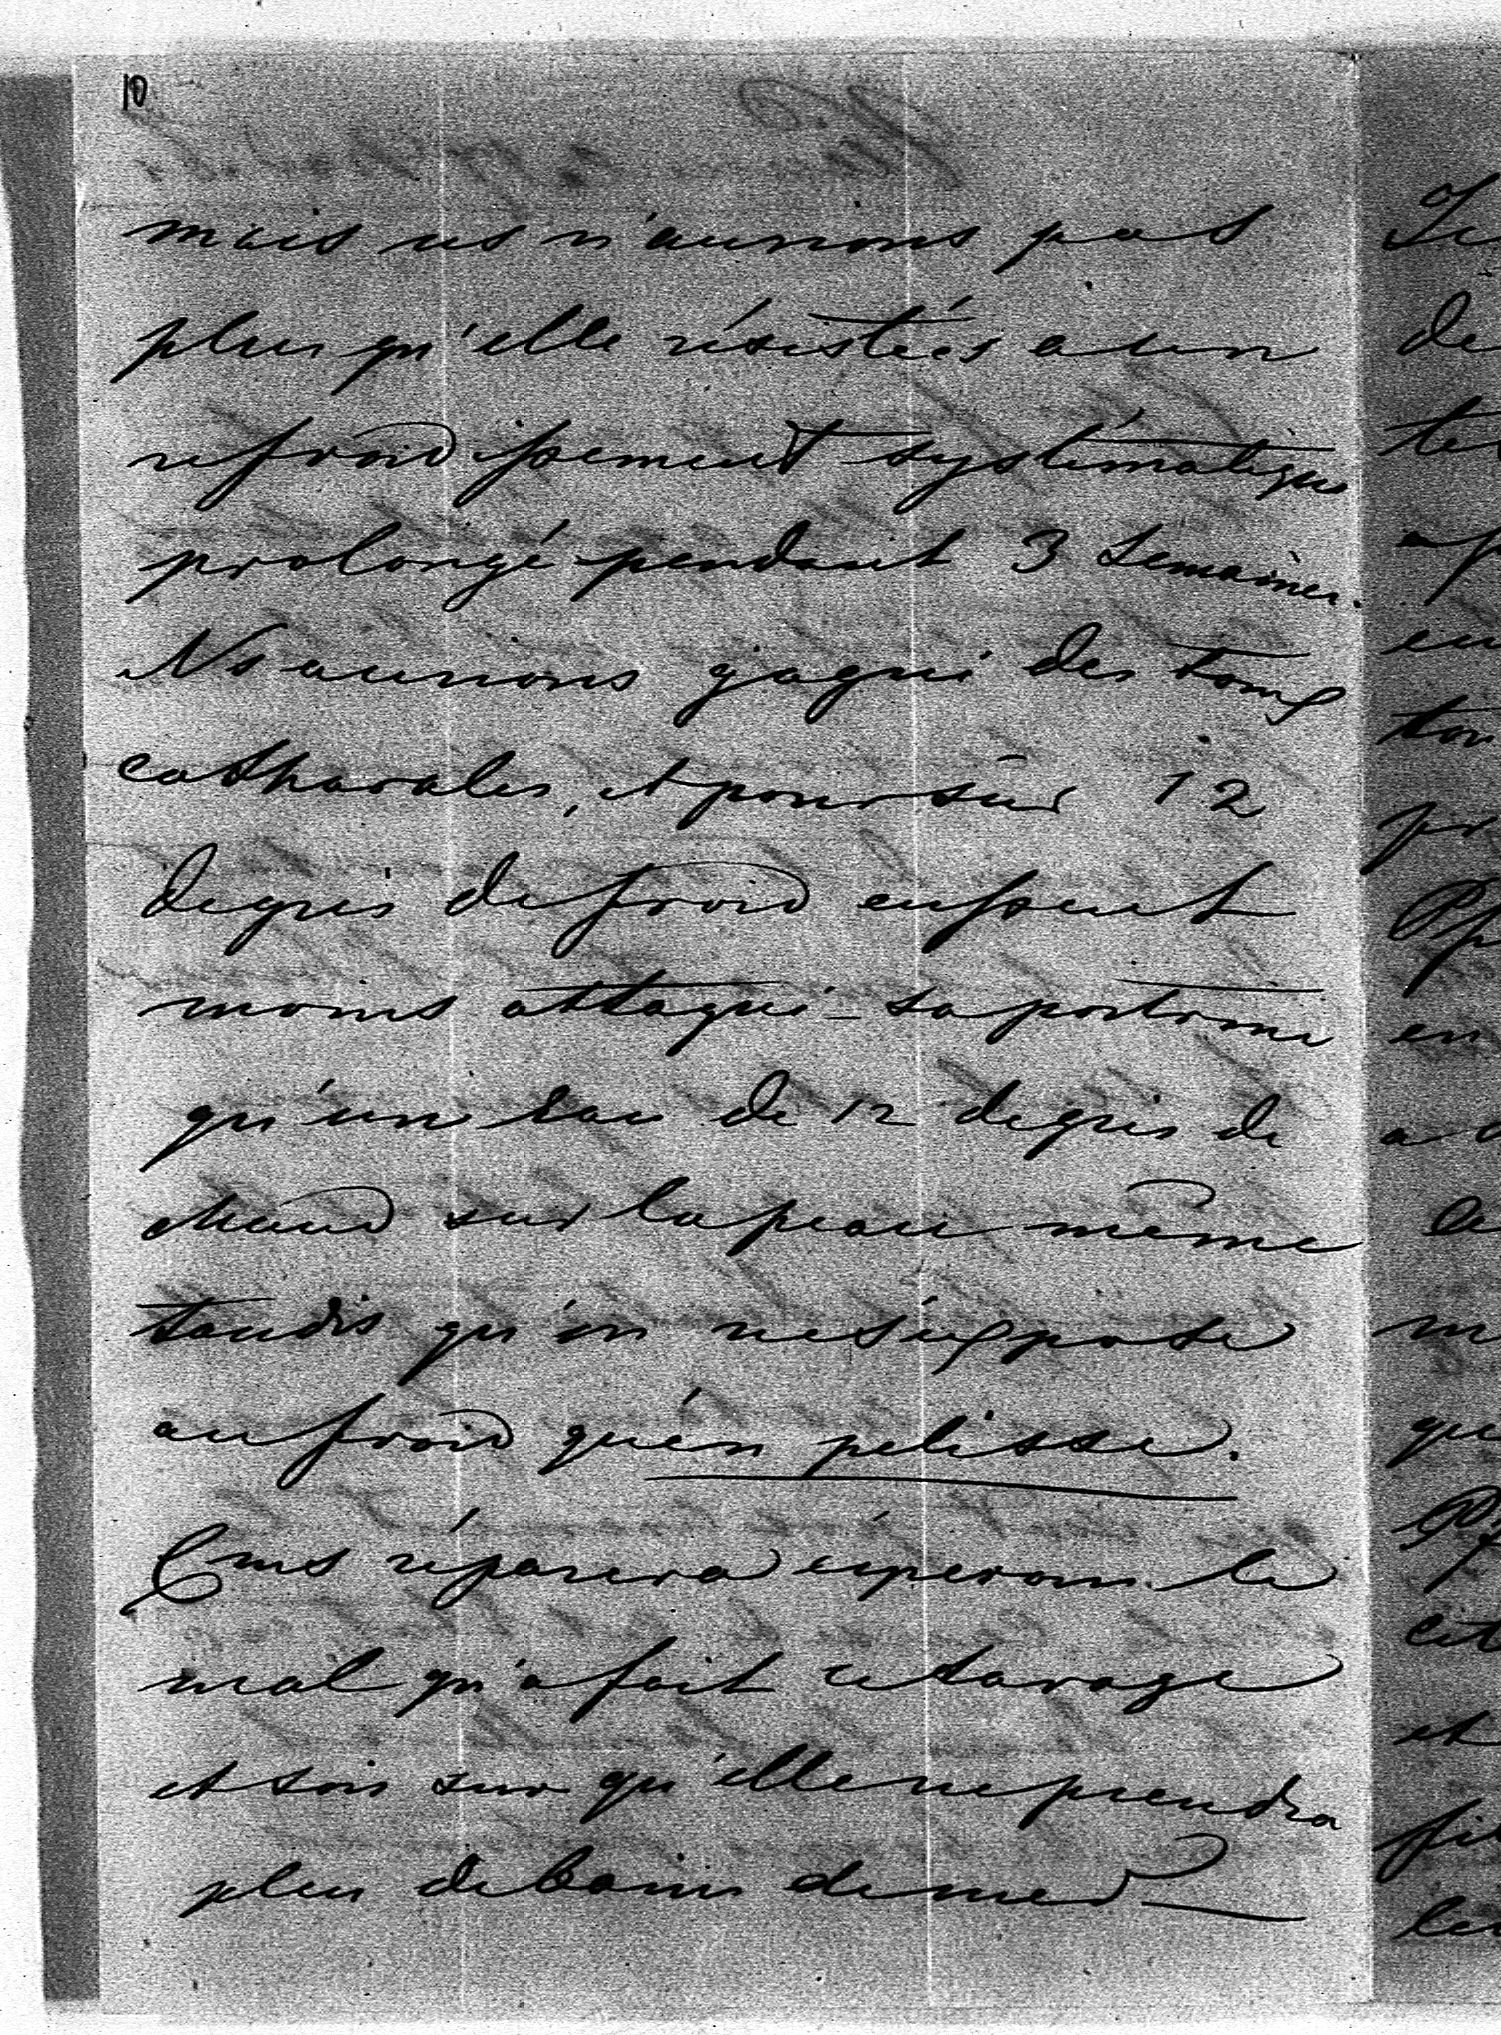 10
mais ns n'aurions pas
plus qu'elle résistées a un
refroidissement systématique
prolongé pendant 3 semaines.
Ns aurions gagné des toux
catharales, et pour sûr 12
degrés de froid eussent
moins attaqué sa poitrine
qu'une eau de 12 degrés de
chaud sur la peau même
tandis qu'on ne s'expose
au froid qu'en pelisse.
Ems réparera espérons le
mal qu'a fait
et sois sur qu'elle ne prendra
plus de bains de mer